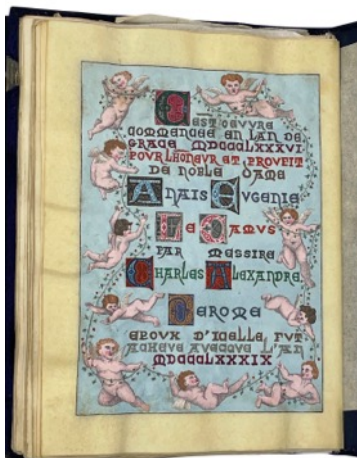 CEST OEUVRE
COMMENCEE EN LAN DE
GRACE MDCCCLXXXVI.
POUR LHONEUR ET PROUFIT
DE NOBLE DAME
ANAIS EUGENIE
LE CAMUS
PAR MESSIRE
CHARLES ALEXANDRE
EPOUX D'ICELLE FUT
ACHEVE AVECQUE L'AN
MDCCCLXXXIX